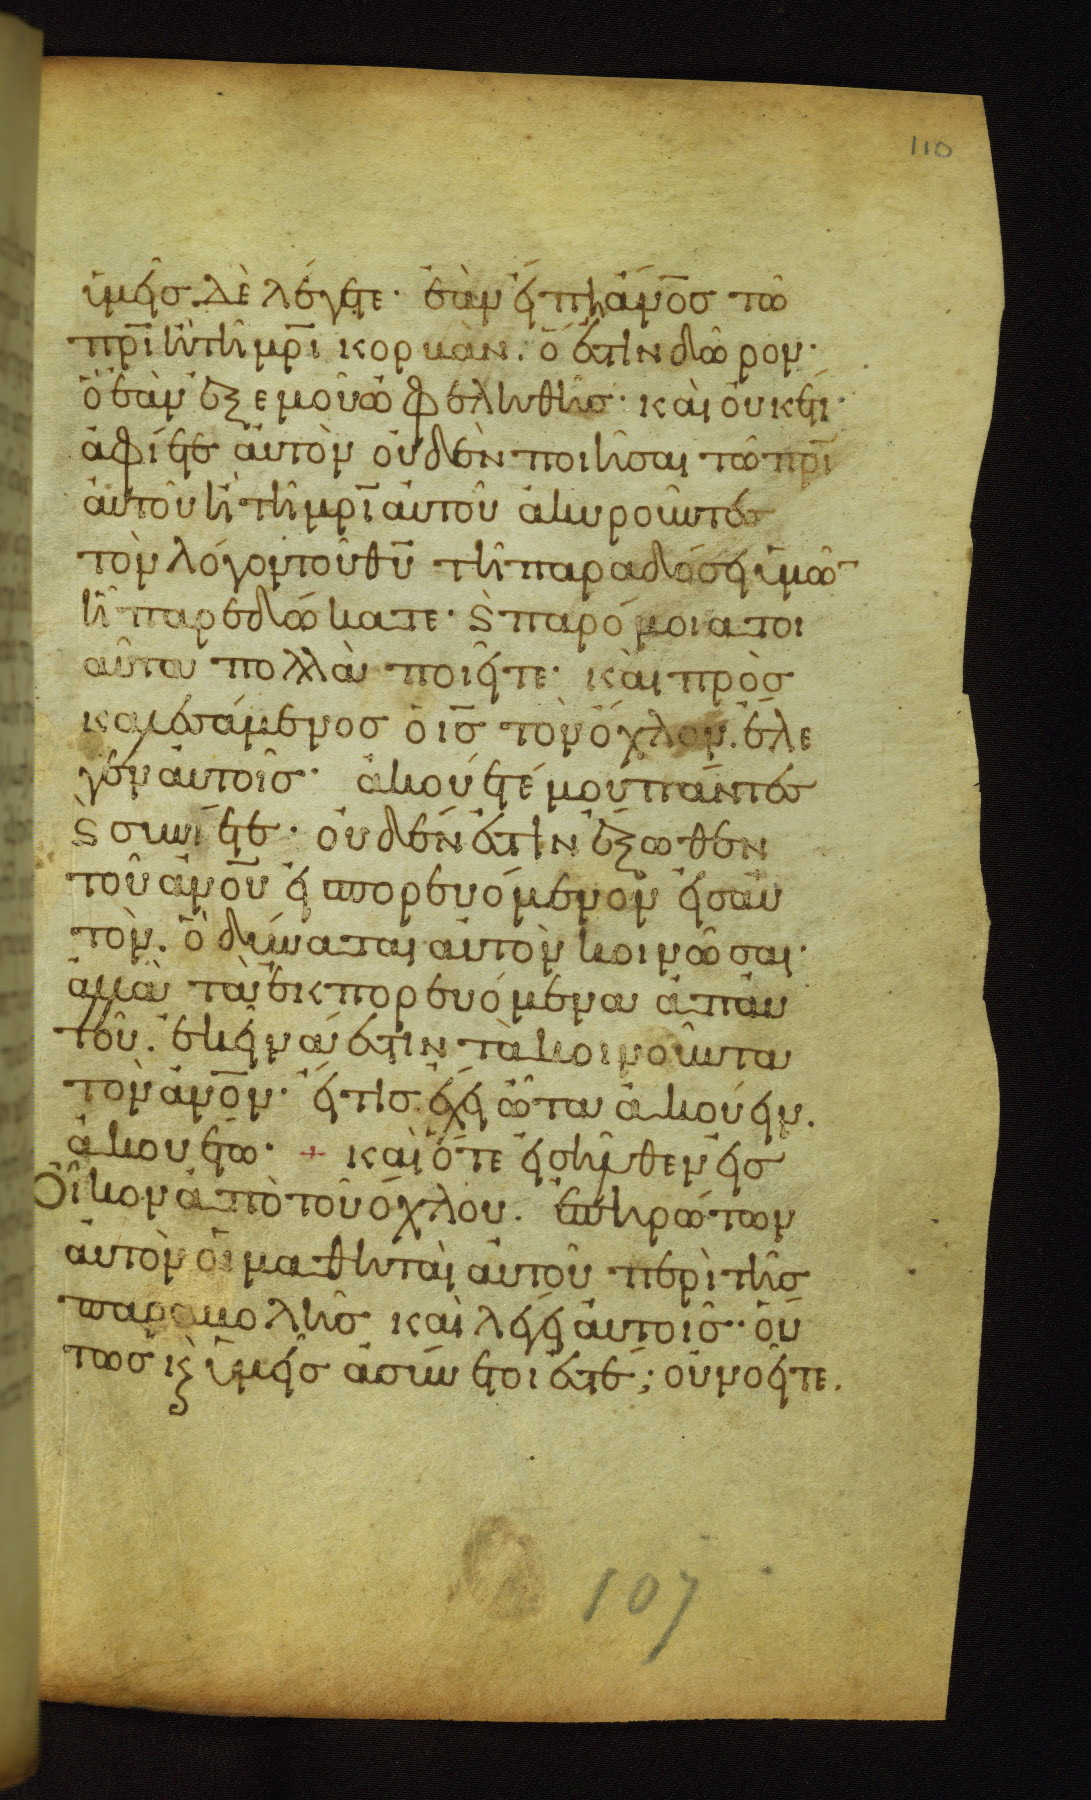 110
ὑμεῖς δὲ λέγετε· ἐὰν εἴπη ἄνο̅ς τῶ
πρ̅ι ἢ τῆ μρ̅ι κορβὰν. ὅ ἐστιν δῶρον·
ὃ ἐὰν ἐξ ἐμοῦ ὠφεληθῆς· καὶ οὐκέτι
ἀφίετε αὐτὸν οὐδὲν ποιῆσαι τῶ πρ̅ι
αὐτοῦ ἢ τῆ μρ̅ι αὐτοῦ ἀκυροῦντες
τὸν λόγον τοῦ θυ̅ τῆ παραδόσει ὑμῶ̅
ἧ παρεδώκατε· ϗ παρόμοια τοι
αῦτα πολλὰ ποιεῖτε· καὶ προσ
καλεσάμενος ὁ ις̅ τὸν ὄχλον. ἔλε
γεν αὐτοῖς· ἀκούετέ μου πάντες
ϗ συνίετε· οὐδέν ἐστιν ἔξωθεν
τοῦ ἀνο̅υ εἰσπορευόμενον εἰς αὐ
τὸν. ὃ δύναται αὐτὸν κοινῶσαι·
ἀλλὰ τὰ ἐκπορευόμενα ἀπ αὐ
τοῦ. ἐκεῖνά ἐστιν τὰ κοινοῦντα
τὸν ἄνο̅ν· εἴ τις ἔχει ὦτα ἀκούειν.
ἀκουέτω· + καὶ ὅτε εἰσῆλθεν εἰς
Οἶκον ἀπὸ τοῦ ὄχλου. ἐπηρώτων
αὐτὸν οἱ μαθηταὶ αὐτοῦ περὶ τῆς
παραβολῆς καὶ λέγει αὐτοῖς· οὕ
τως ϗ ὑμεῖς ἀσύνετοι ἐστέ; οὐ νοεῖτε.
107